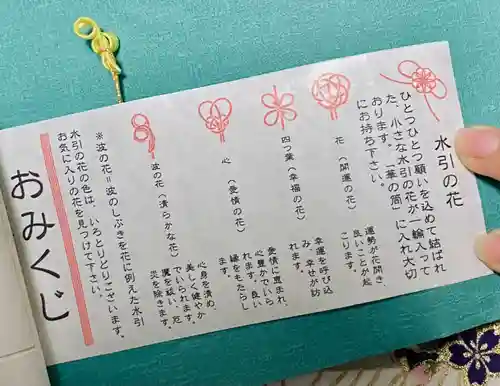 水引の花
ひとつひとつ願いを込めて結ばれ
た、小さな水引の花が一輪入って
おります。「華の筒」に入れ大切
にお持ち下さい。
花（開運の花）
運勢が花開き
良いことが起
こります。
四つ葉（幸福の花）
幸運を呼び込
み、幸せが訪
れます。
心（愛情の花）
愛情に恵まれ、
心豊かでいら
れます。良い
縁をもたらし
ます。
波の花（清らかな花）
心身を清め、
美しく健やか
でいられます。
魔を祓い、厄
災を除きます。
※波の花＝波のしぶきを花に例えた水引
水引の花の色は、いろとりどりございます。
お気に入りの花を見つけて下さい。
おみくじ